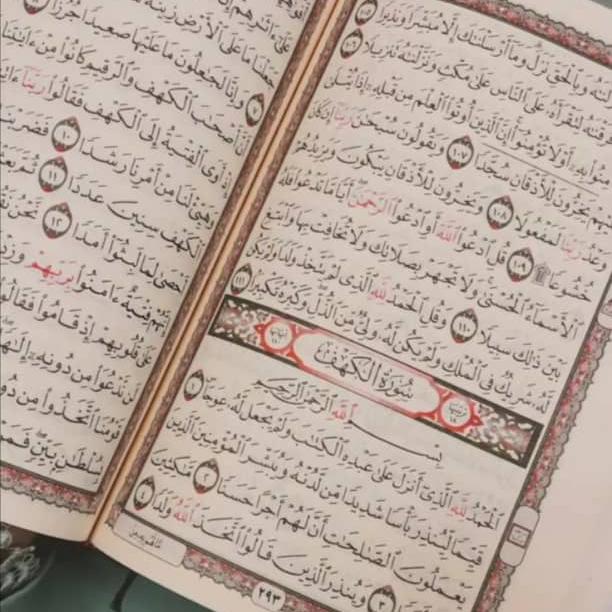 وَبِٱلْحَقِّ نَزَلَ وَمَآ أَرْسَلْنَٰكَ إِلَّا مُبَشِّرًا وَنَذِيرًا ١٠٥
لِتَقْرَأَهُۥ عَلَى ٱلنَّاسِ عَلَىٰ مُكْثٍ وَنَزَّلْنَٰهُ تَنزِيلًا ١٠٦
بِهِۦٓ أَوْ لَا تُؤْمِنُوٓا۟ إِنَّ ٱلَّذِينَ أُوتُوا۟ ٱلْعِلْمَ مِن قَبْلِهِۦٓ إِذَا يُتْلَىٰ
يَخِرُّونَ لِلْأَذْقَانِ سُجَّدًا ١٠٧ وَيَقُولُونَ سُبْحَٰنَ رَبِّنَآ إِن كَانَ
وَعْدُ رَبِّنَا لَمَفْعُولًا ١٠٨ وَيَخِرُّونَ لِلْأَذْقَانِ يَبْكُونَ وَيَزِيدُهُمْ
خُشُوعًا ۩ ١٠٩ قُلِ ٱدْعُوا۟ ٱللَّهَ أَوِ ٱدْعُوا۟ ٱلرَّحْمَٰنَ أَيًّا مَّا تَدْعُوا۟ فَلَهُ
ٱلْأَسْمَآءُ ٱلْحُسْنَىٰ وَلَا تَجْهَرْ بِصَلَاتِكَ وَلَا تُخَافِتْ بِهَا وَٱبْتَغِ
بَيْنَ ذَٰلِكَ سَبِيلًا ١١٠ وَقُلِ ٱلْحَمْدُ لِلَّهِ ٱلَّذِى لَمْ يَتَّخِذْ وَلَدًا وَلَمْ يَكُن
لَّهُۥ شَرِيكٌ فِى ٱلْمُلْكِ وَلَمْ يَكُن لَّهُۥ وَلِىٌّ مِّنَ ٱلذُّلِّ وَكَبِّرْهُ تَكْبِيرًۢا ١١١
سُورَةُ ٱلْكَهْفِ
بِسْمِ ٱللَّهِ ٱلرَّحْمَٰنِ ٱلرَّحِيمِ
ٱلْحَمْدُ لِلَّهِ ٱلَّذِىٓ أَنزَلَ عَلَىٰ عَبْدِهِ ٱلْكِتَٰبَ وَلَمْ يَجْعَل لَّهُۥ عِوَجَا ١
قَيِّمًا لِّيُنذِرَ بَأْسًا شَدِيدًا مِّن لَّدُنْهُ وَيُبَشِّرَ ٱلْمُؤْمِنِينَ ٱلَّذِينَ
يَعْمَلُونَ ٱلصَّٰلِحَٰتِ أَنَّ لَهُمْ أَجْرًا حَسَنًا ٢ مَّٰكِثِينَ
٣ وَيُنذِرَ ٱلَّذِينَ قَالُوا۟ ٱتَّخَذَ ٱللَّهُ وَلَدًا ٤
٢٩٣
عَلَىٰٓ ءَاثَٰرِهِمْ إِن
جَعَلْنَا مَا عَلَى ٱلْأَرْضِ زِينَةً
وَإِنَّا لَجَٰعِلُونَ مَا عَلَيْهَا صَعِيدًا جُرُزًا
أَنَّ أَصْحَٰبَ ٱلْكَهْفِ وَٱلرَّقِيمِ كَانُوا۟ مِنْ ءَايَٰتِنَا
إِذْ أَوَى ٱلْفِتْيَةُ إِلَى ٱلْكَهْفِ فَقَالُوا۟ رَبَّنَآ
وَهَيِّئْ لَنَا مِنْ أَمْرِنَا رَشَدًا ١٠
ٱلْكَهْفِ سِنِينَ عَدَدًا ١١ ثُمَّ
أَحْصَىٰ لِمَا لَبِثُوٓا۟ أَمَدًا ١٢ نَّحْنُ
إِنَّهُمْ فِتْيَةٌ ءَامَنُوا۟ بِرَبِّهِمْ
عَلَىٰ قُلُوبِهِمْ إِذْ قَامُوا۟ فَقَالُوا۟
لَن نَّدْعُوَا۟ مِن دُونِهِۦٓ إِلَٰهًا
قَوْمُنَا ٱتَّخَذُوا۟ مِن
بِسُلْطَٰنٍۭ بَيِّنٍ فَمَنْ